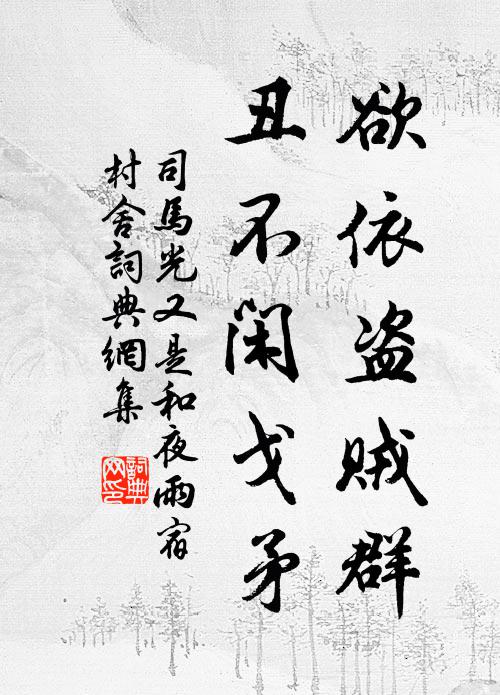 欲依盗賊群
丑不閑戈矛
司馬光又是和夜雨宿
村舍詞典網集
詞典
网印